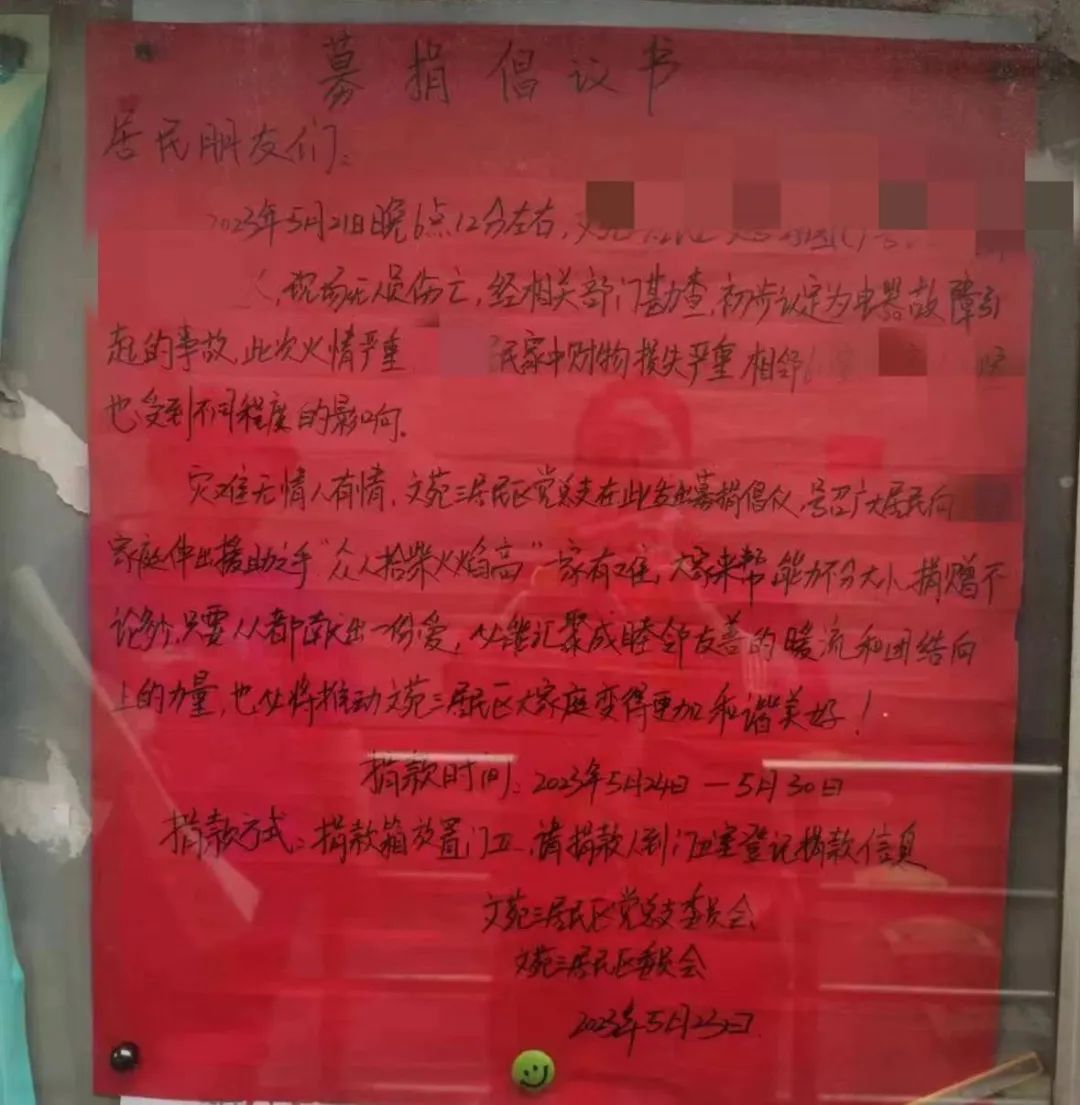 募捐倡议书
居民朋友们：
2023年5月21日晚6点12分左右，
人，现场无人员伤亡，经相关部门勘查，初步认定为电器故障引
起的事故。此次火情严重 民家中财物损失严重，相邻
也受到不同程度的影响。
灾难无情人有情，文苑三居民区党总支在此发出募捐倡议，号召广大居民向
家庭伸出援助之手“众人拾柴火焰高”一家有难，大家来帮，能力不分大小，捐赠不
论多少，只要人人都献出一份爱，必能汇聚成睦邻友善的暖流和团结向
上的力量，也必将推动文苑三居民区大家庭变得更加和谐美好！
捐款时间：2023年5月24日—5月30日
捐款方式：捐款箱放置门卫，请捐款人到门卫室登记捐款信息
文苑三居民区党总支委员会
文苑三居民区委员会
2023年5月23日